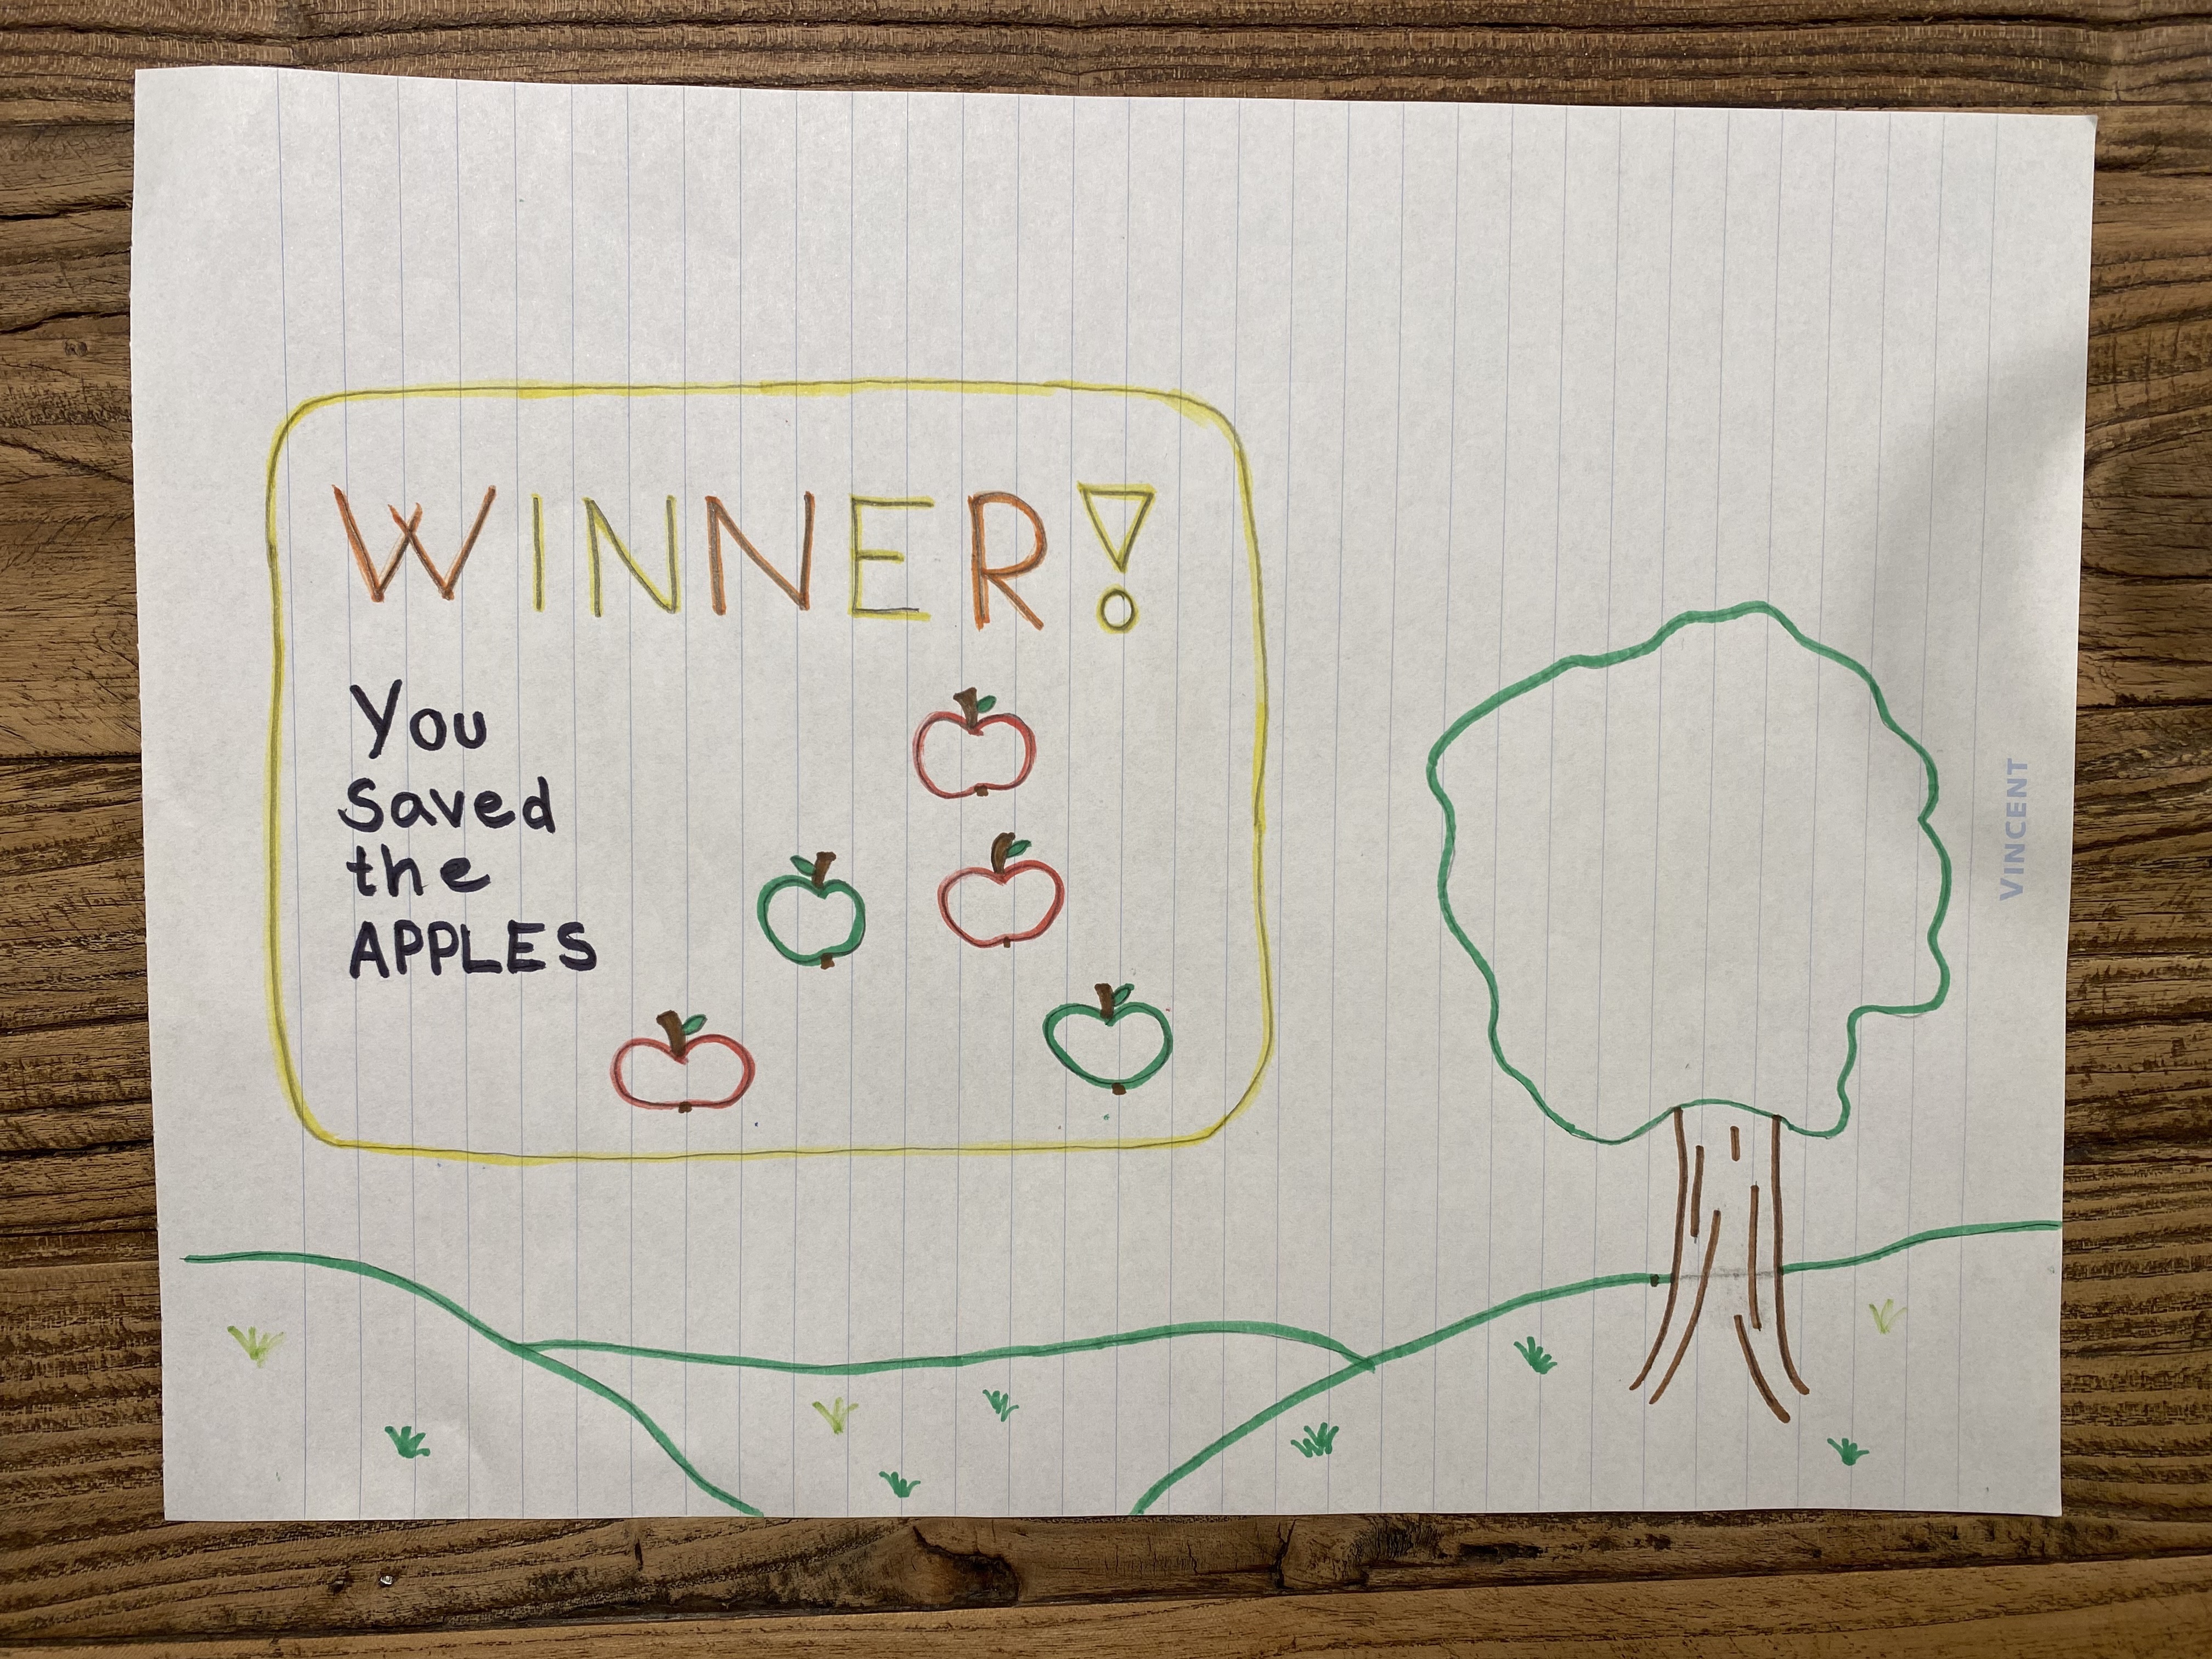 WINNER!
You
saved
the
APPLES
VINCENT